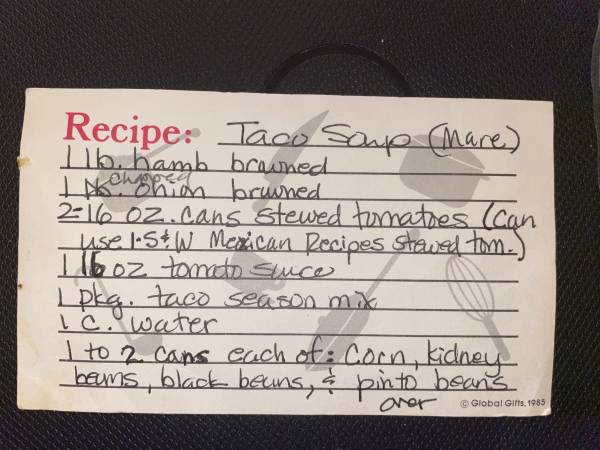 Recipe: Taco Soup (Mare)
1 lb. hamb browned
1 chopped onion browned
2-16 oz. cans stewed tomatoes (can
use 1-S&W Mexican Recipes stewed tom.)
1 16 oz tomato sauce
1 pkg. taco season mix
1 c. water
1 to 2 cans each of: corn, kidney
beans, black beans, & pinto beans
over
© Global Gifts, 1985